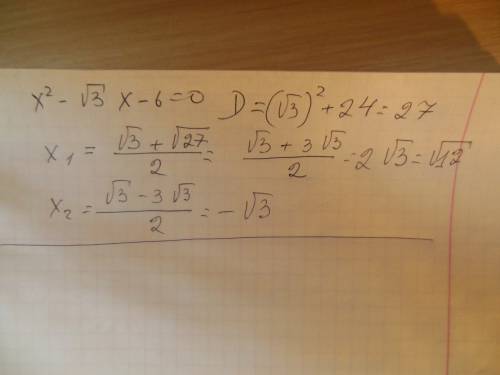 x² - √3 x - 6 = 0 D = (√3)² + 24 = 27
x₁ = (√3 + √27)/2 = (√3 + 3√3)/2 = 2√3 = √12
x₂ = (√3 - 3√3)/2 = -√3